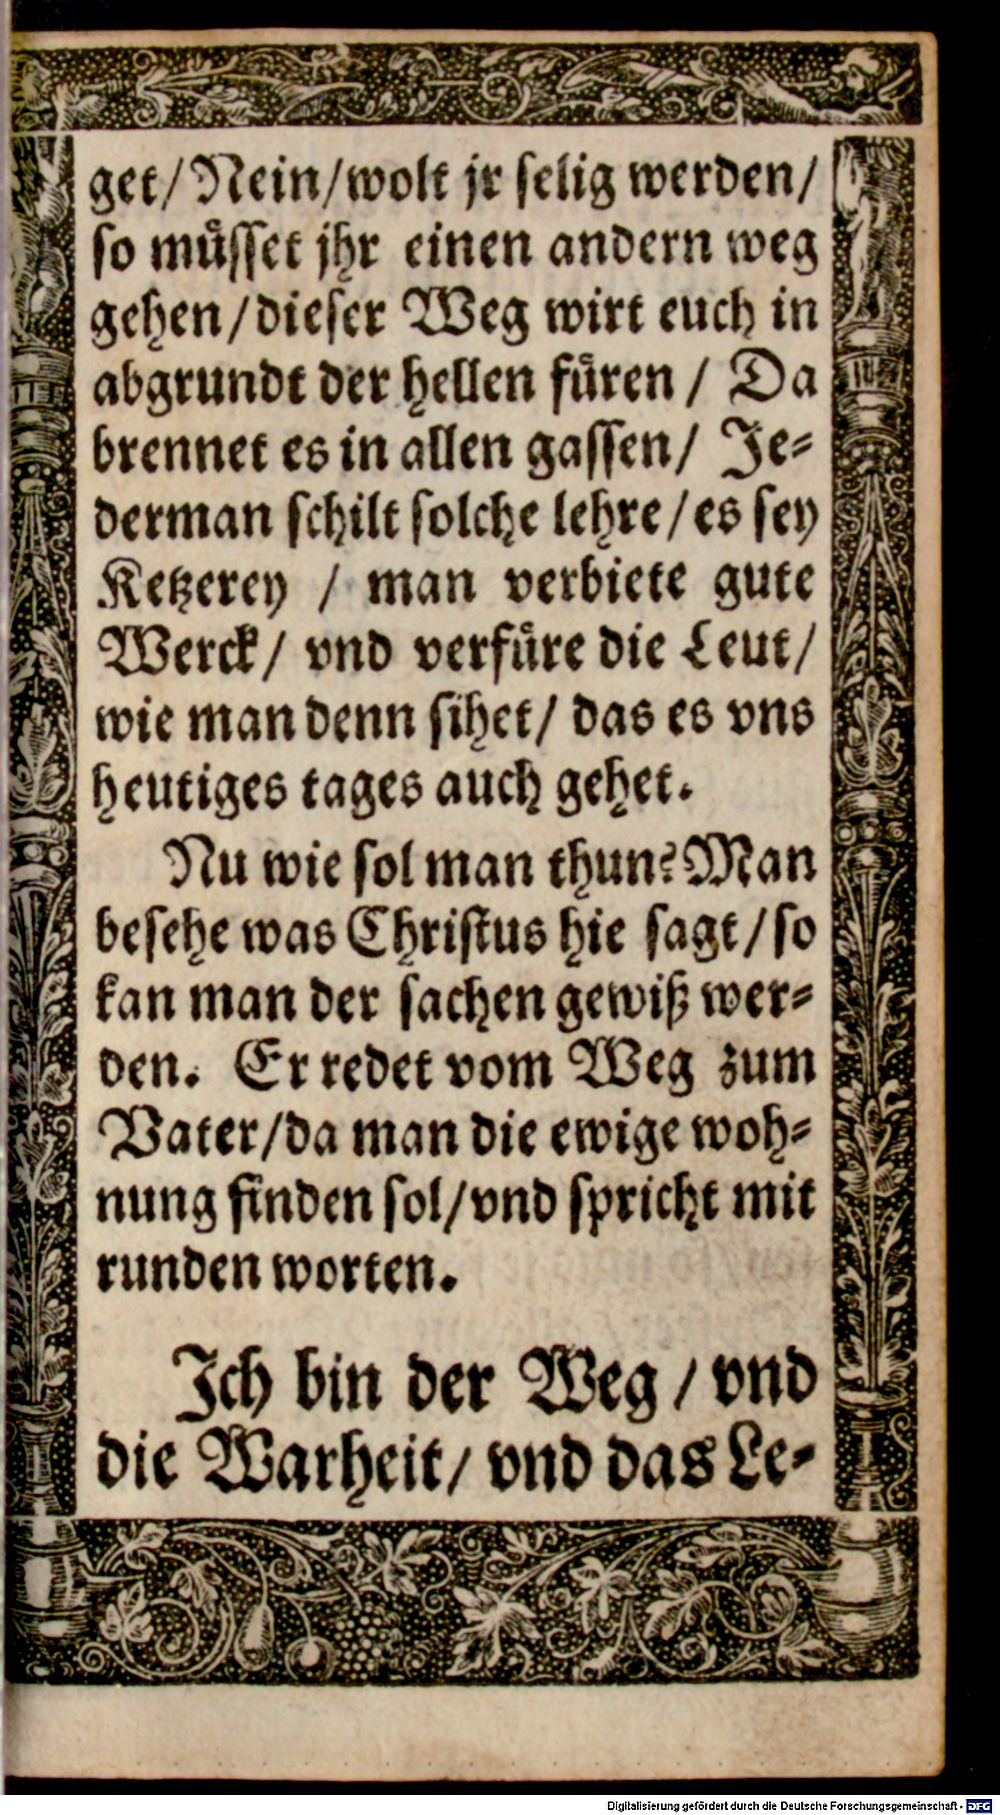 get/ Nein/ wolt jr selig werden/
so muͤsset jhr einen andern weg
gehen/ dieser Weg wirt euch in
abgrundt der hellen fuͤren / Da
brennet es in allen gassen/ Je-
derman schilt solche lehre/ es sey
Ketzerey / man verbiete gute
Werck/ vnd verfuͤre die Leut/
wie man denn sihet/ das es vns
heutiges tages auch gehet.
Nu wie sol man thun? Man
besehe was Christus hie sagt/ so
kan man der sachen gewiß wer-
den. Er redet vom Weg zum
Vater/ da man die ewige woh-
nung finden sol/ vnd spricht mit
runden worten.
Ich bin der Weg / vnd
die Warheit/ vnd das Le-
Digitalisierung gefördert durch die Deutsche Forschungsgemeinschaft - DFG